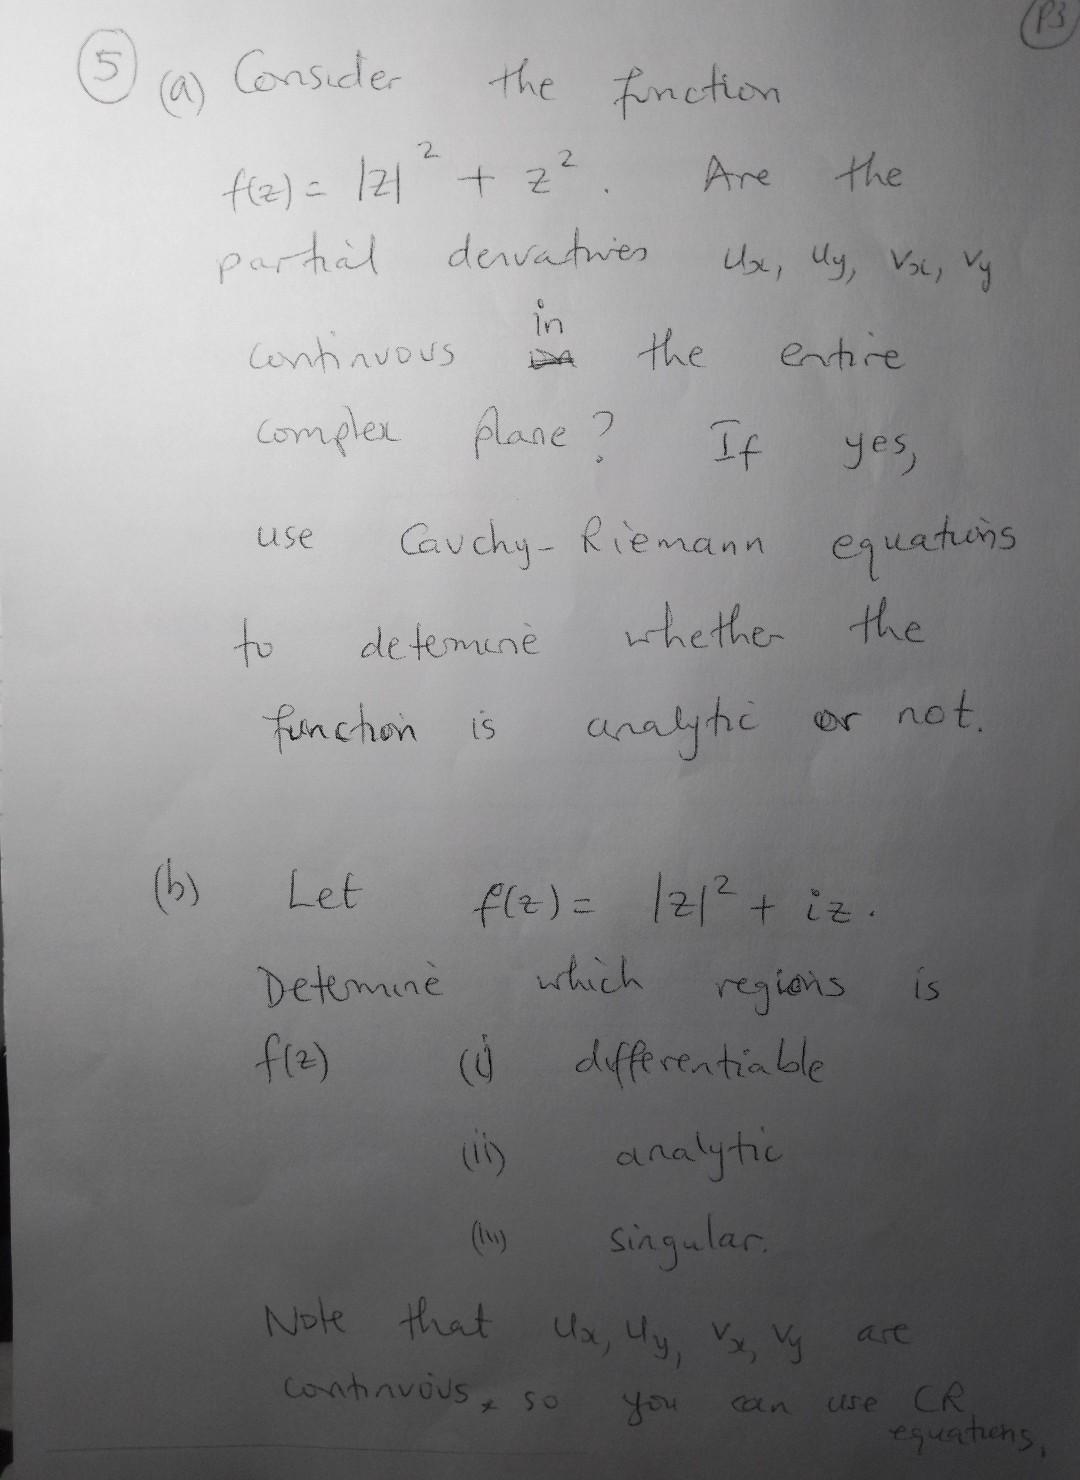 P3
5 (a) Consider the function
f(z) = |z|² + z². Are the
partial derivatives uₓ, u_y, vₓ, v_y
continuous in the entire
complex plane? If yes,
use Cauchy-Riemann equations
to determine whether the
function is analytic or not.
(b) Let f(z) = |z|² + iz.
Determine which regions is
f(z) (i) differentiable
(ii) analytic
(iii) singular.
Note that uₓ, u_y, vₓ, v_y are
continuous, so you can use CR
equations,